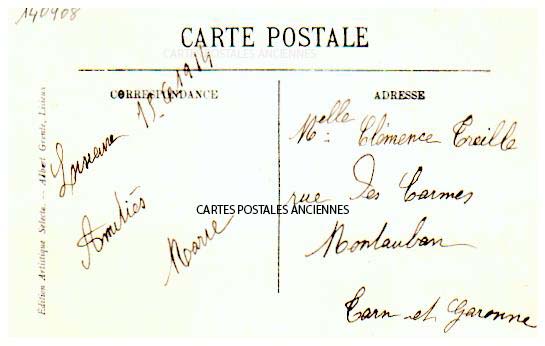 140408
CARTE POSTALE
CARTES POSTALES ANCIENNES
CORRESPONDANCE
ADRESSE
15
1914
Amitiés
Marie
Melle Clémence Treille
rue des Carmes
CARTES POSTALES ANCIENNES
Montauban
Tarn et Garonne
Edition Artistique Selecta. — Albert Grente, Lisieux